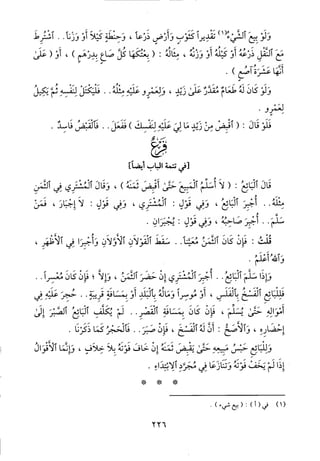 وَلَوْ بِيعَ الشَّيْءُ(١) تَقْدِيراً كَثَوْبٍ وَأَرْضٍ ذَرْعاً ، وَحِنْطَةٍ كَيْلاً أَوْ وَزْناً.. اشْتُرِطَ
مَعَ النَّقْلِ ذَرْعُهُ أَوْ كَيْلُهُ أَوْ وَزْنُهُ ، مِثَالُهُ : ( بِعْتُكَهَا كُلَّ صَاعٍ بِدِرْهَمٍ ) ، أَوْ ( عَلَىٰ
أَنَّهَا عَشَرَةُ آصُعٍ ) .
وَلَوْ كَانَ لَهُ طَعَامٌ مُقَدَّرٌ عَلَىٰ زَيْدٍ ، وَلِعَمْرٍو عَلَيْهِ مِثْلُهُ.. فَلْيَكْتَلْ لِنَفْسِهِ ثُمَّ يَكِيلُ
لِعَمْرٍو .
فَلَوْ قَالَ : ( اقْبِضْ مِنْ زَيْدٍ مَا لِي عَلَيْهِ لِنَفْسِكَ ) فَفَعَلَ.. فَالْقَبْضُ فَاسِدٌ .
فَرْعٌ
[في تتمة الباب أيضاً]
قَالَ الْبَائِعُ : ( لاَ أُسَلِّمُ الْمَبِيعَ حَتَّىٰ أَقْبِضَ ثَمَنَهُ ) ، وَقَالَ الْمُشْتَرِي فِي الثَّمَنِ
مِثْلَهُ.. أُجْبِرَ الْبَائِعُ ، وَفِي قَوْلٍ : الْمُشْتَرِي ، وَفِي قَوْلٍ : لاَ إِجْبَارَ ، فَمَنْ
سَلَّمَ.. أُجْبِرَ صَاحِبُهُ ، وَفِي قَوْلٍ : يُجْبَرَانِ .
قُلْتُ : فَإِنْ كَانَ الثَّمَنُ مُعَيَّناً.. سَقَطَ الْقَوْلاَنِ الأَوَّلاَنِ وَأُجْبِرَا فِي الأَظْهَرِ ،
وَاللهُ أَعْلَمُ .
وَإِذَا سَلَّمَ الْبَائِعُ.. أُجْبِرَ الْمُشْتَرِي إِنْ حَضَرَ الثَّمَنُ ، وَإِلاَّ ؛ فَإِنْ كَانَ مُعْسِراً..
فَلِلْبَائِعِ الْفَسْخُ بِالْفَلَسِ ، أَوْ مُوسِراً وَمَالُهُ بِالْبَلَدِ أَوْ بِمَسَافَةٍ قَرِيبَةٍ.. حُجِرَ عَلَيْهِ فِي
أَمْوَالِهِ حَتَّىٰ يُسَلِّمَ ، فَإِنْ كَانَ بِمَسَافَةِ الْقَصْرِ.. لَمْ يُكَلَّفِ الْبَائِعُ الصَّبْرَ إِلَىٰ
إِحْضَارِهِ ، وَالأَصَحُّ : أَنَّ لَهُ الْفَسْخَ ، فَإِنْ صَبَرَ.. فَالْحَجْرُ كَمَا ذَكَرْنَا .
وَلِلْبَائِعِ حَبْسُ مَبِيعِهِ حَتَّىٰ يَقْبِضَ ثَمَنَهُ إِنْ خَافَ فَوْتَهُ بِلاَ خِلاَفٍ ، وَإِنَّمَا الأَقْوَالُ
إِذَا لَمْ يَخَفْ فَوْتَهُ وَتَنَازَعَا فِي مُجَرَّدِ الاِبْتِدَاءِ .
* * *
(١) في (أ) : ( بيع شيء ) .
٢٢٦